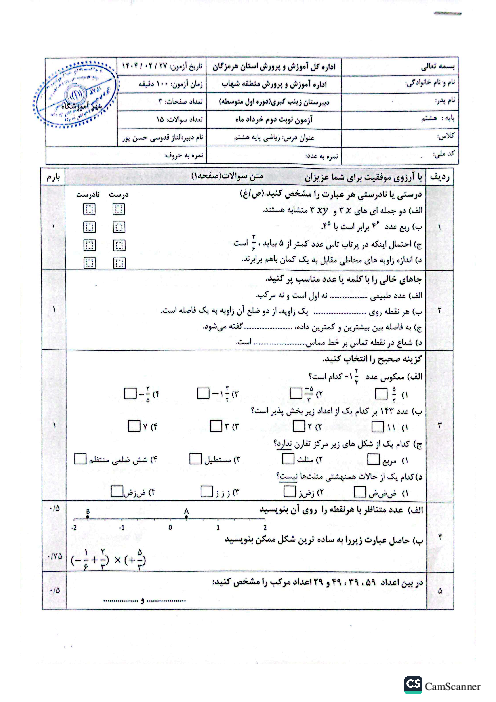 بسمه تعالی
اداره کل آموزش و پرورش استان هرمزگان
تاریخ آزمون: ۱۴۰۴ / ۰۲ / ۲۷
نام و نام خانوادگی:
اداره آموزش و پرورش منطقه شهاب
زمان آزمون: ۱۰۰ دقیقه
نام پدر:
دبیرستان زینب کبری(دوره اول متوسطه)
تعداد صفحات: ۳
پایه : هشتم
آزمون نوبت دوم خرداد ماه
تعداد سوالات: ۱۵
کلاس:
عنوان درس: ریاضی پایه هشتم
نام دبیر:الناز قدوسی حسن پور
کد ملی:
نمره به عدد:
نمره به حروف:
ردیف
با آرزوی موفقیت برای شما عزیزان
متن سوالات(صفحه۱)
بارم
۱
درستی یا نادرستی هر عبارت را مشخص کنید (ص/غ)
درست نادرست
الف) دو جمله ای های ۳x و ۳xy متشابه هستند.
ب) ربع عدد ۴⁶ برابر است با ۴⁵.
ج) احتمال اینکه در پرتاب تاس عدد کمتر از ۵ بیاید ، است
د) اندازه زاویه های محاطی مقابل به یک کمان باهم برابرند.
۱
۲
جاهای خالی را با کلمه یا عدد مناسب پر کنید.
الف) عدد طبیعی ............... نه اول است و نه مرکب.
ب) هر نقطه روی ............... یک زاویه، از دو ضلع آن زاویه به یک فاصله است.
ج) به فاصله بین بیشترین و کمترین داده، ............... گفته می‌شود.
د) شعاع در نقطه تماس بر خط مماس ............... است.
۱
۳
گزینه صحیح را انتخاب کنید.
الف) معکوس عدد -۱ ۲/۳ کدام است؟
ب) عدد ۱۴۳ بر کدام یک از اعداد زیر بخش پذیر است؟
۱) ۱۱ ۲) ۲ ۳) ۳ ۴) ۷
ج) کدام یک از شکل های زیر مرکز تقارن ندارد؟
۱) مربع ۲) مثلث ۳) مستطیل ۴) شش ضلعی منتظم
د)کدام یک از حالات همنهشتی مثلث‌ها نیست؟
۱) ض‌ض‌ض ۲) ز‌ض‌ز ۳) ز ز ز ۴) ض‌ز‌ض
۱
۴
الف) عدد متناظر با هرنقطه را روی آن بنویسید
۰/۵
B A
-2 -1 0 1 2
ب) حاصل عبارت زیررا به ساده ترین شکل ممکن بنویسید
۰/۷۵
(-۱/۶ + ۲/۳) × (+۵/۳)
۵
در بین اعداد ۵۹ ، ۳۹ ، ۴۹ و ۲۹ اعداد مرکب را مشخص کنید:
۰/۵
............... و ...............
CS CamScanner